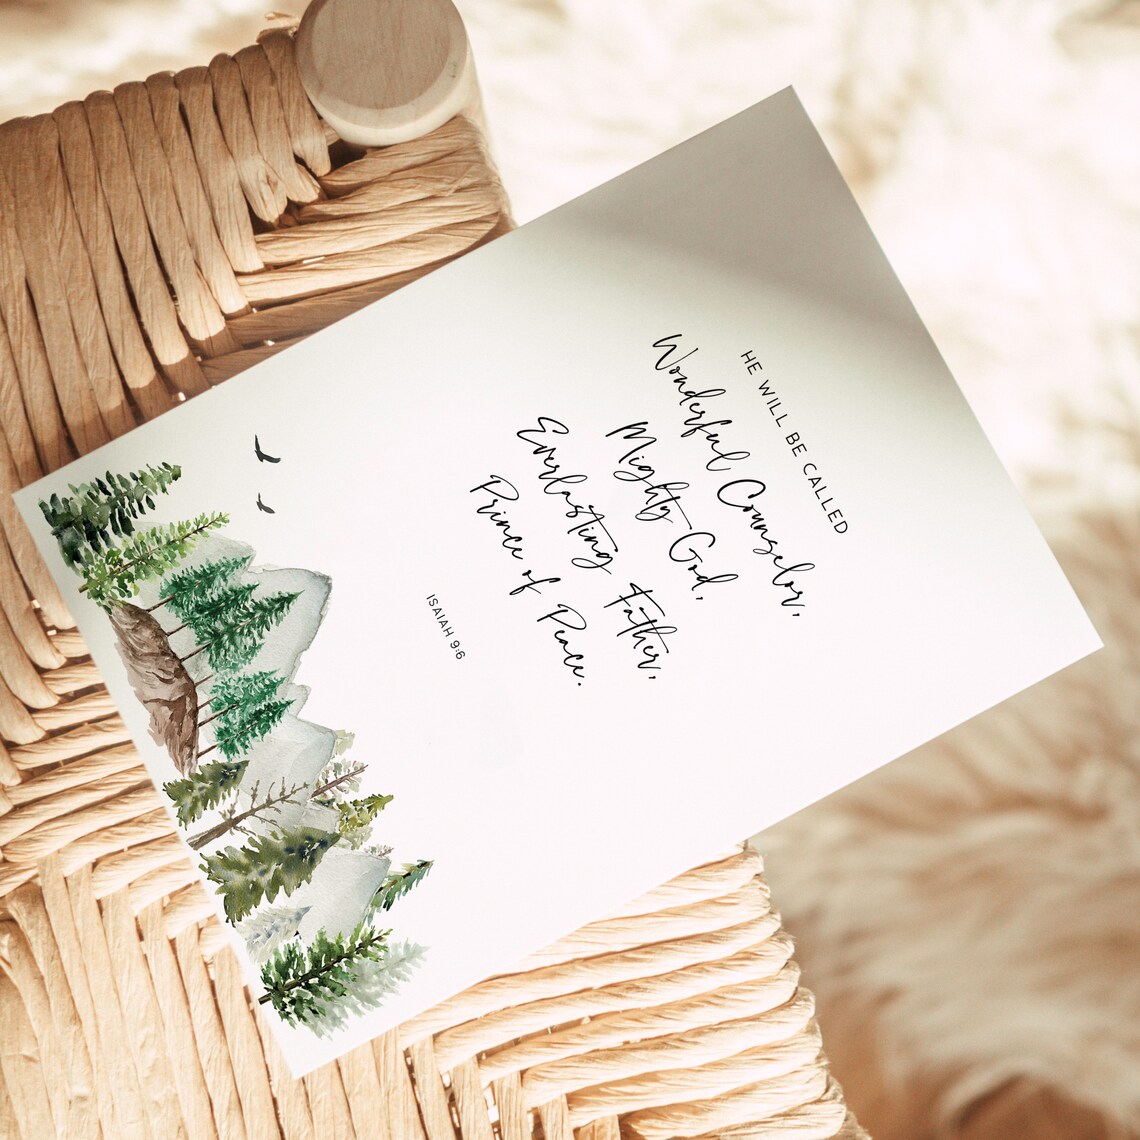 HE WILL BE CALLED
Wonderful Counselor,
Mighty God,
Everlasting Father,
Prince of Peace.
ISAIAH 9:6